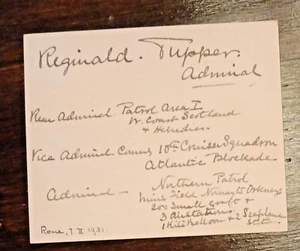 Reginald. Tupper.
Admiral
Rear Admiral. Patrol Area I
W. Coast Scotland
& Hebrides.
Vice Admiral. Commg 10th Cruiser Squadron
Atlantic Blockade.
Admiral — Northern Patrol
Mine Field Norway to Orkneys
200 Small Craft &
3 Air Stations
1 Kite Balloon & 2 Seaplane
Rome, 7. II. 1931.